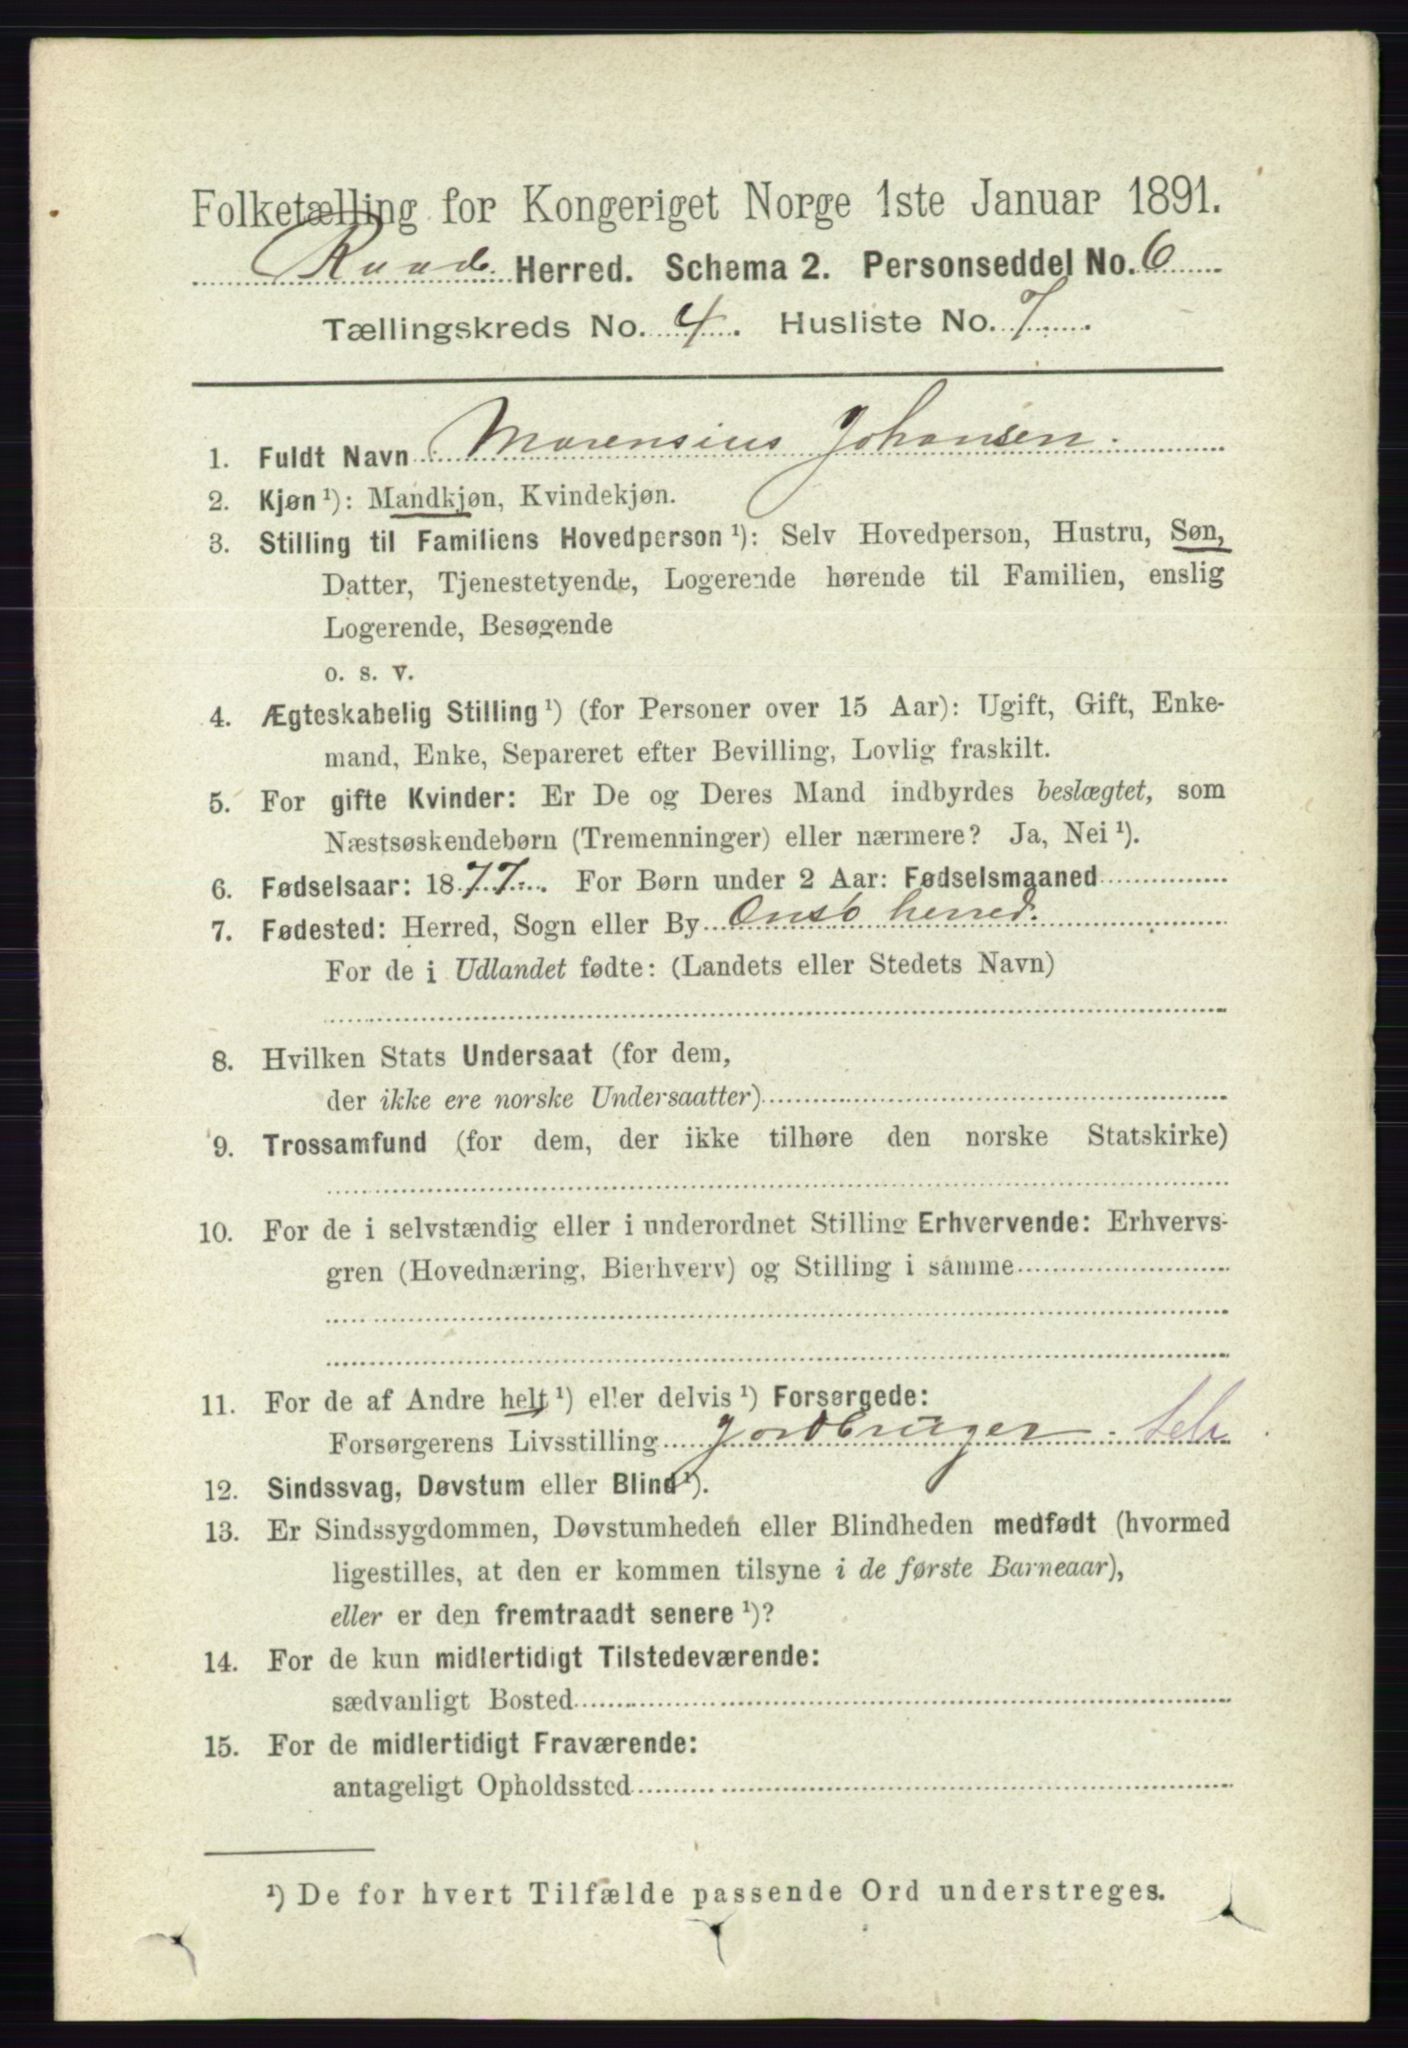 Folketælling for Kongeriget Norge 1ste Januar 1891.
Raade Herred. Schema 2. Personseddel No. 6
Tællingskreds No. 4. Husliste No. 7.
1. Fuldt Navn Marensius Johansen.
2. Kjøn ¹): Mandkjøn, Kvindekjøn.
3. Stilling til Familiens Hovedperson ¹): Selv Hovedperson, Hustru, Søn,
Datter, Tjenestetyende, Logerende hørende til Familien, enslig
Logerende, Besøgende
o. s. v.
4. Ægteskabelig Stilling ¹) (for Personer over 15 Aar): Ugift, Gift, Enke-
mand, Enke, Separeret efter Bevilling, Lovlig fraskilt.
5. For gifte Kvinder: Er De og Deres Mand indbyrdes beslægtet, som
Næstsøskendebørn (Tremenninger) eller nærmere? Ja, Nei ¹).
6. Fødselsaar: 1877. For Børn under 2 Aar: Fødselsmaaned
7. Fødested: Herred, Sogn eller By Onsø herred.
For de i Udlandet fødte: (Landets eller Stedets Navn)
8. Hvilken Stats Undersaat (for dem,
der ikke ere norske Undersaatter)
9. Trossamfund (for dem, der ikke tilhøre den norske Statskirke)
10. For de i selvstændig eller i underordnet Stilling Erhvervende: Erhvervs-
gren (Hovednæring, Bierhverv) og Stilling i samme
11. For de af Andre helt ¹) eller delvis ¹) Forsørgede:
Forsørgerens Livsstilling Jordbruger. Selv
12. Sindssvag, Døvstum eller Blind ¹).
13. Er Sindssygdommen, Døvstumheden eller Blindheden medfødt (hvormed
ligestilles, at den er kommen tilsyne i de første Barneaar),
eller er den fremtraadt senere ¹)?
14. For de kun midlertidigt Tilstedeværende:
sædvanligt Bosted
15. For de midlertidigt Fraværende:
antageligt Opholdssted
¹) De for hvert Tilfælde passende Ord understreges.